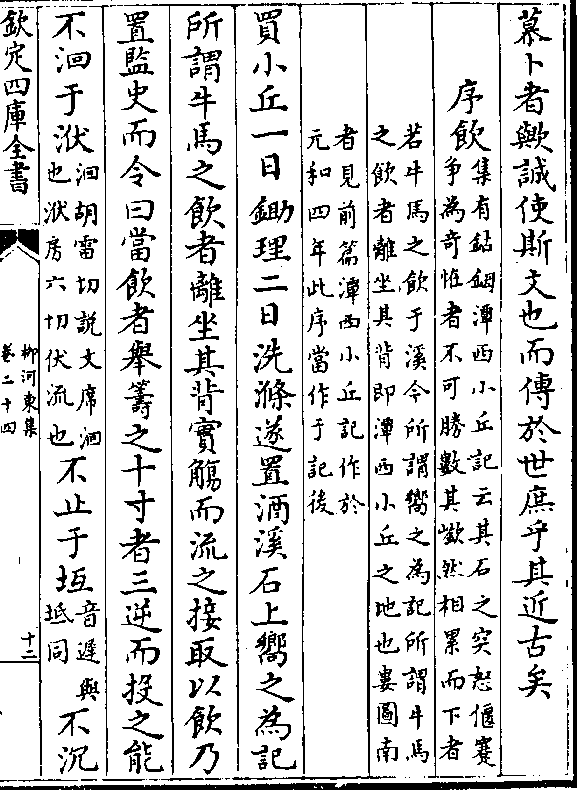 慕卜者歟誠使斯文也而傳於世庶乎其近古矣
序飲集有鈷鉧潭西小丘記云其石之突怒偃蹇
爭為奇恠者不可勝數其嶔然相累而下者
若牛馬之飲于溪今所謂嚮之為記所謂牛馬
之飲者離坐其背即潭西小丘之地也婁圖南
者見前篇潭西小丘記作於
元和四年此序當作于記後
買小丘一日鋤理二日洗滌遂置酒溪石上嚮之為記
所謂牛馬之飲者離坐其背實觴而流之接取以飲乃
置監史而令曰當飲者舉籌之十寸者三逆而投之能
不洄于洑洄胡雷切説文㴑洄
也洑房六切伏流也不止于坻音遲與
坻同不沉
欽定四庫全書
柳河東集
卷二十四
十二